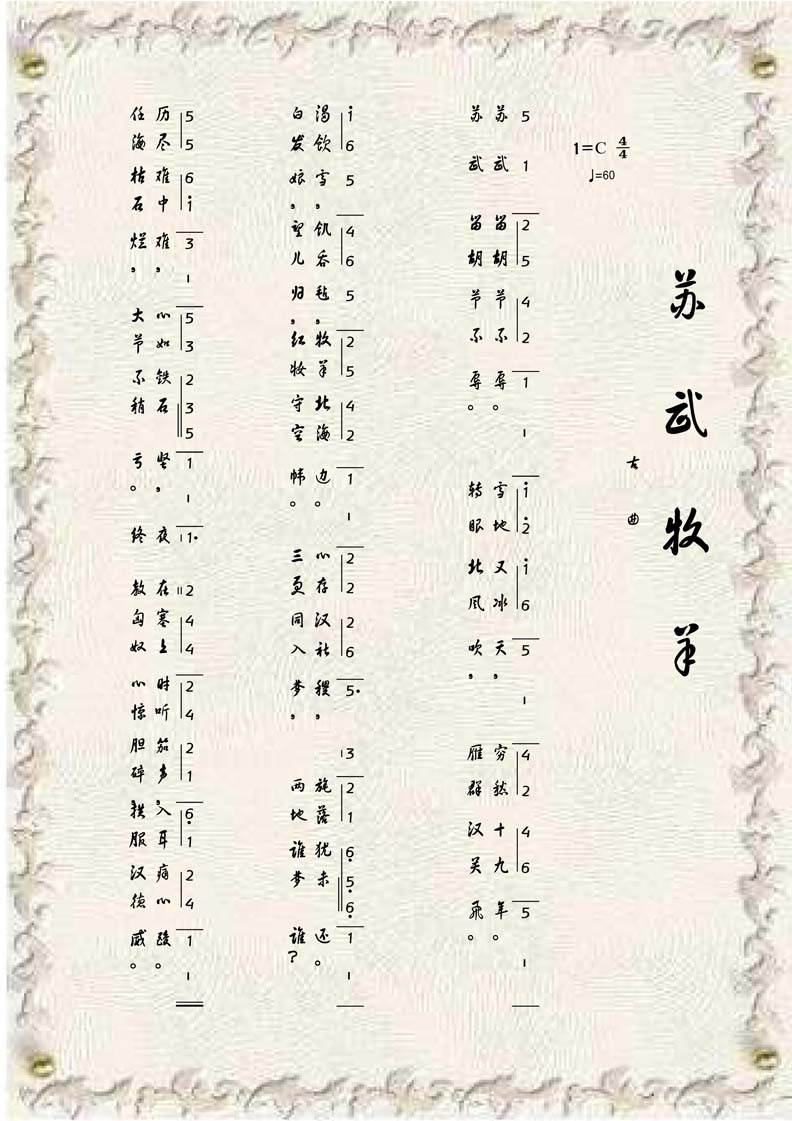 苏武牧羊
古曲
1=C 4/4
♩=60
5 1 2 5 4 2 1 - 1̇ 2̇ 1̇ 6 5 - 4 2 4 6 5 -
苏武留胡节不辱。雪地又冰天,穷愁十九年。
苏武留胡节不辱。转眼北风吹,雁群汉关飞。
1̇ 6 5 4 6 5 2 5 4 2 1 - 2 2 2 6 5· 3 2 1 6̣ 5̣ 6̣ 1 -
渴饮雪,饥吞毡,牧羊北海边。心存汉社稷,旄落犹未还。
白发娘,望儿归,红妆守空帏。三更同入梦,两地谁梦谁?
5 5 6 1̇ 3 - 5 3 2 3 5 1 - 1· 2 4 4 2 4 2 1 6̣ 1 2 4 1 -
历尽难中难,心如铁石坚,夜在塞上时听笳声,入耳痛心酸。
任海枯石烂,大节不稍亏。终教匈奴心惊胆碎,拱服汉德威。